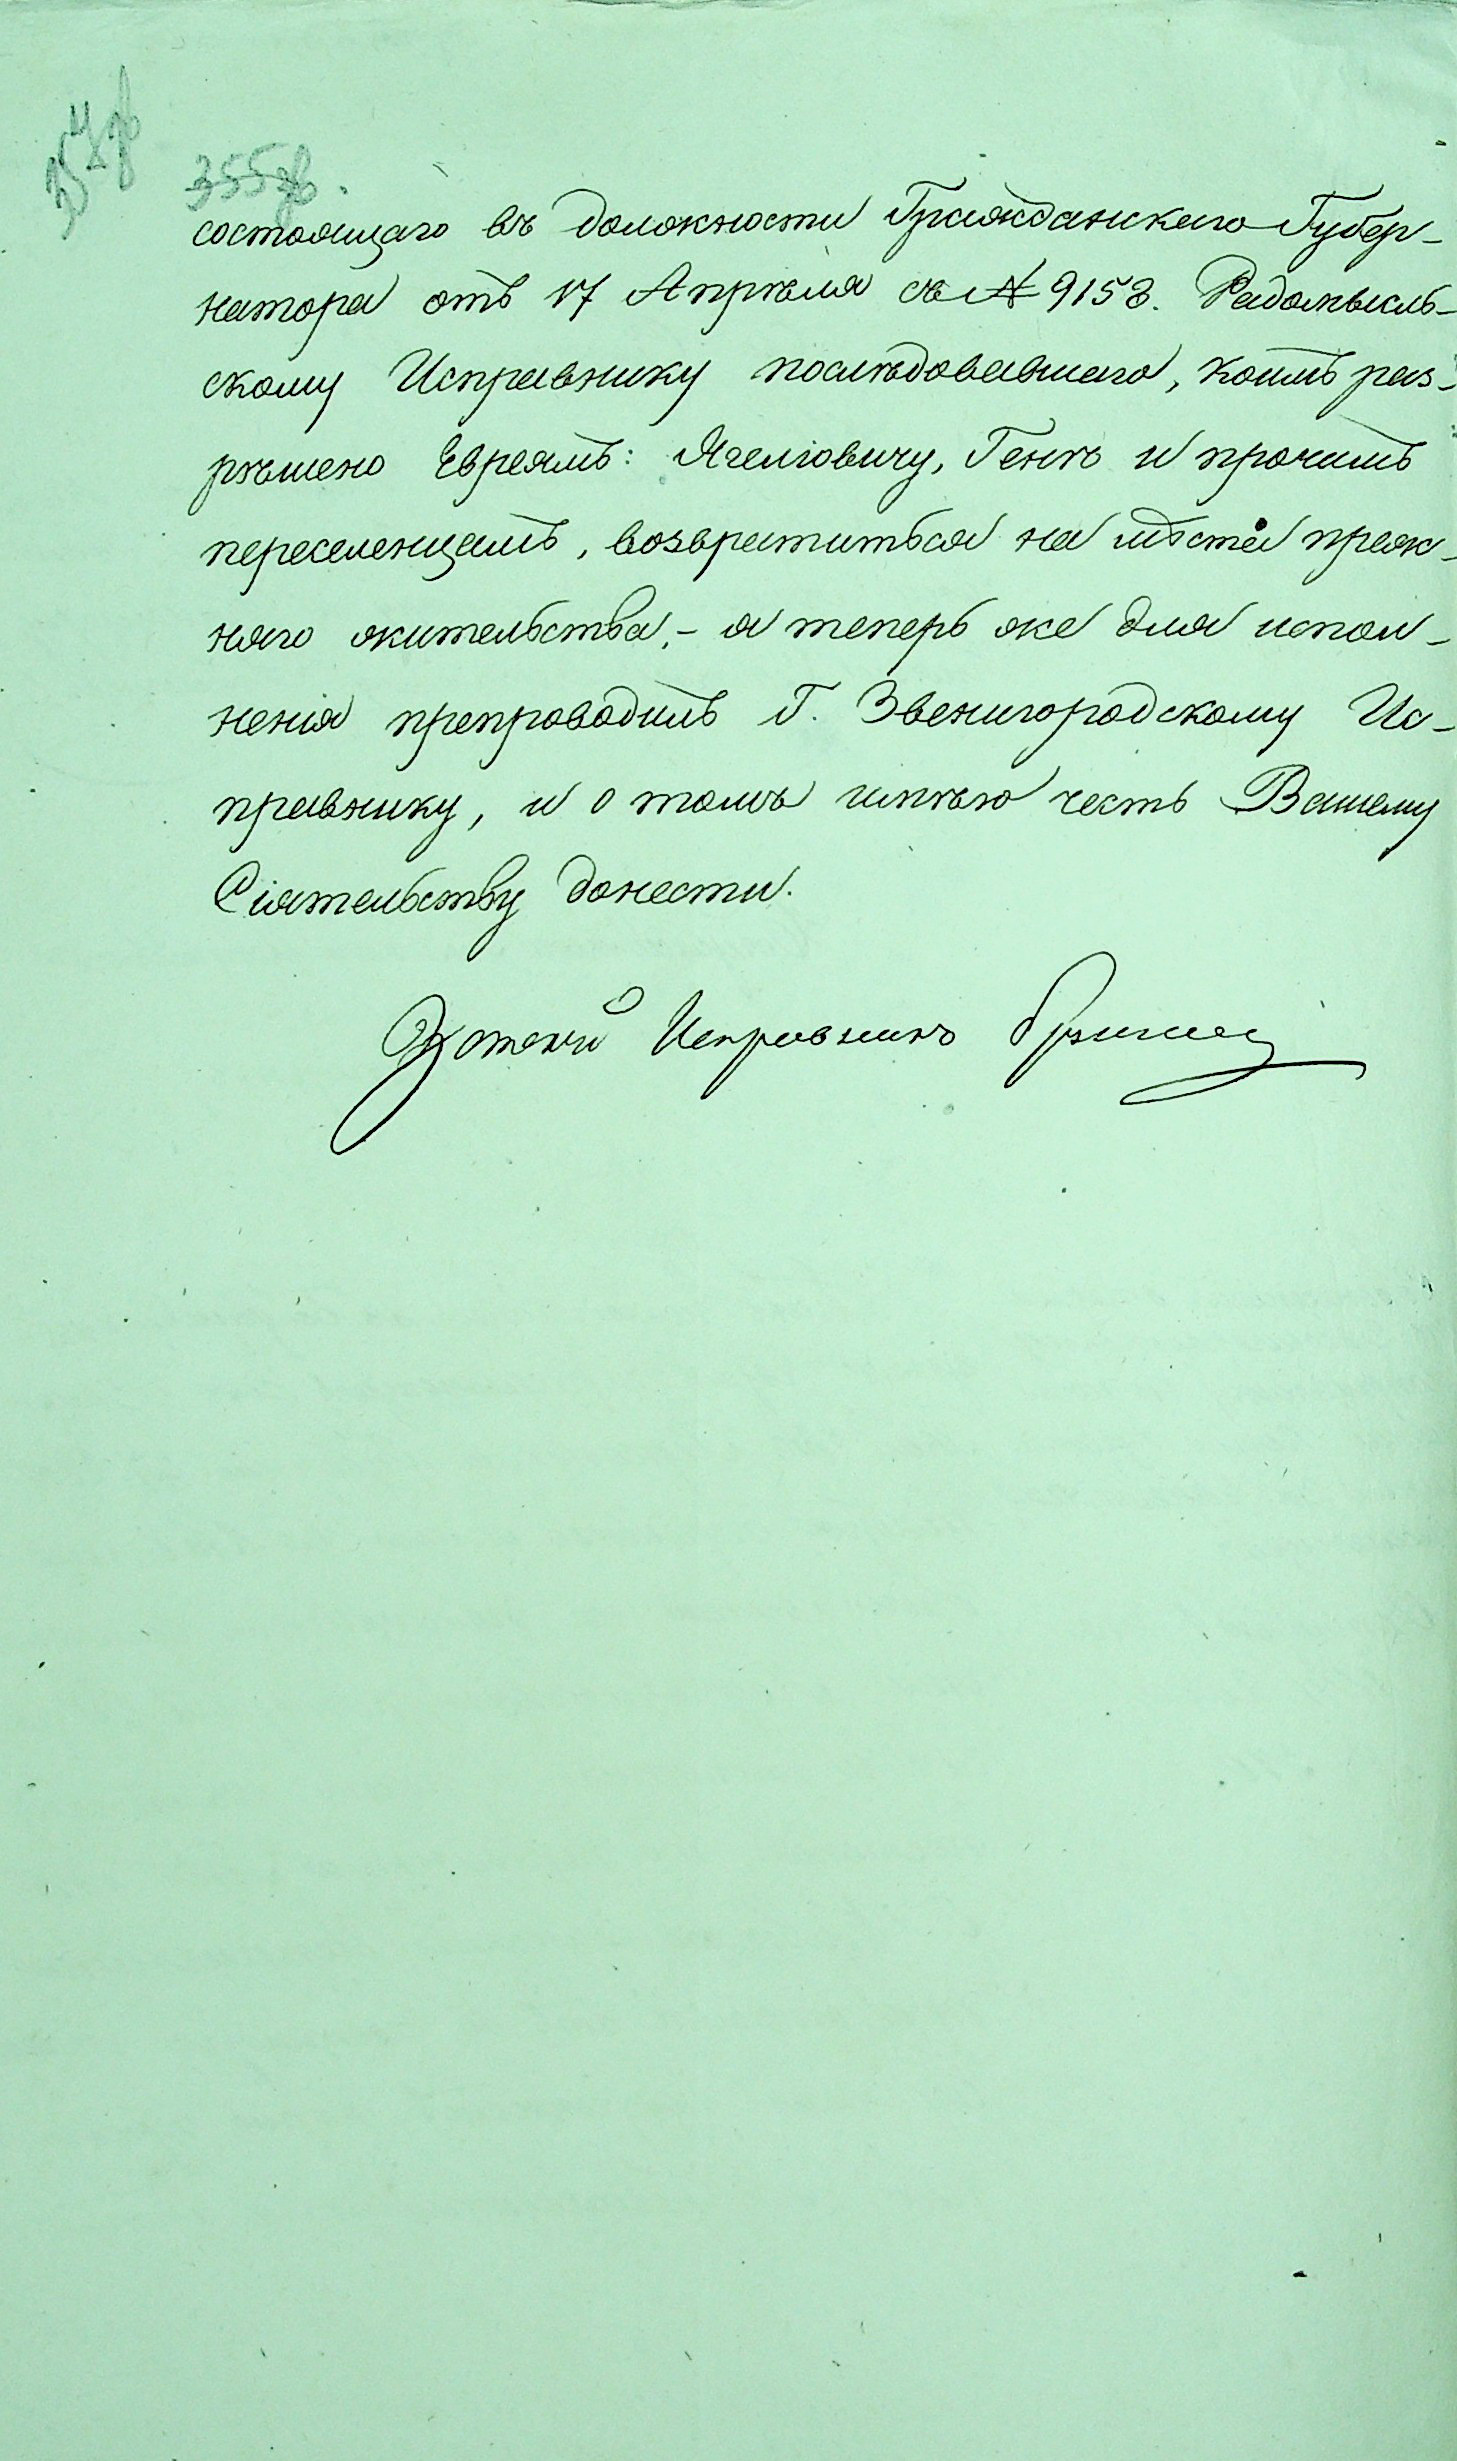 355 об.
состоящаго въ должности Гражданскаго Губер-
натора отъ 17 Апрѣля за № 9153. Радомысль-
скому Исправнику послѣдовавшаго, коимъ раз-
рѣшено Евреямъ: Ягеловичу, Генъ и прочимъ
переселенцамъ, возвратиться на мѣста преж-
няго жительства,- а теперь же для испол-
ненія препроводилъ Г. Звенигородскому Ис-
правнику, и о томъ имѣю честь Вашему
Сіятельству донести.
Исправникъ